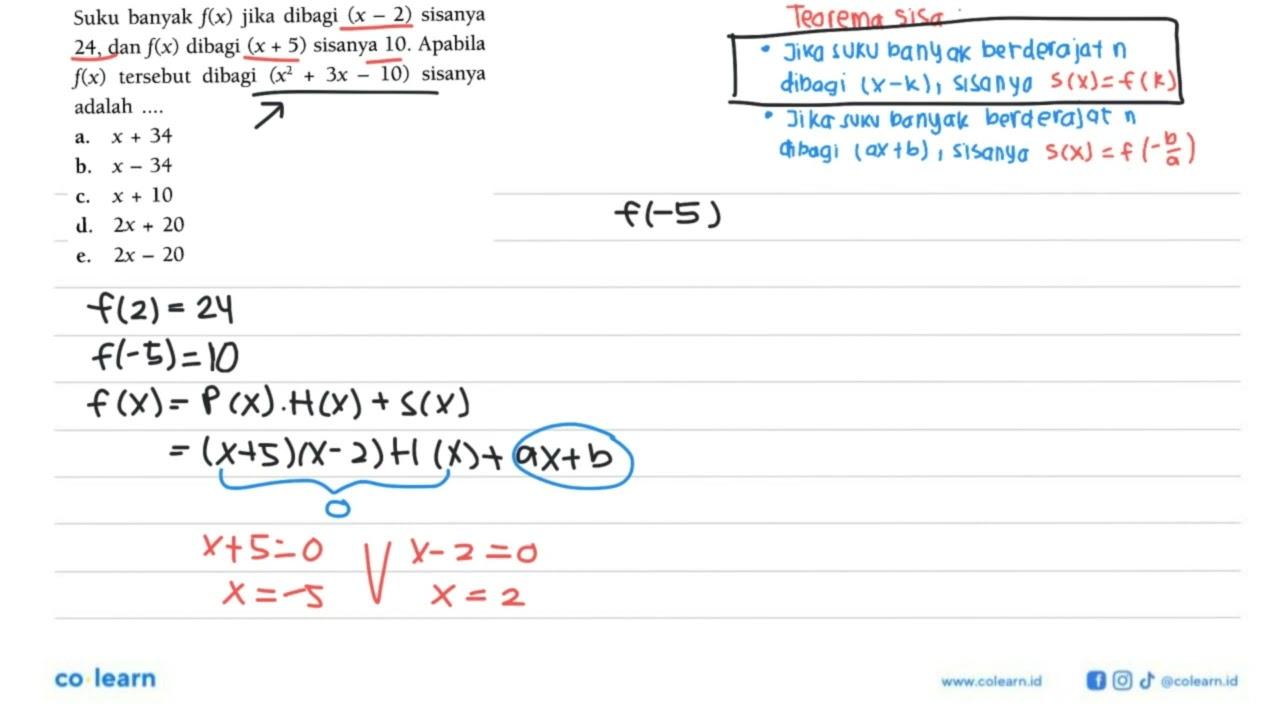 Suku banyak f(x) jika dibagi (x − 2) sisanya
24, dan f(x) dibagi (x + 5) sisanya 10. Apabila
f(x) tersebut dibagi (x² + 3x − 10) sisanya
adalah ....
a. x + 34
b. x − 34
c. x + 10
d. 2x + 20
e. 2x − 20
Teorema sisa
• Jika suku banyak berderajat n
dibagi (x-k), sisanya s(x)=f(k)
• Jika suku banyak berderajat n
dibagi (ax+b), sisanya s(x) = f(-b/a)
f(-5)
f(2) = 24
f(-5)=10
f(x)= P(x).H(x) + s(x)
= (x+5)(x-2)H(x)+ ax+b
0
x+5=0 V x-2=0
x=-5 x=2
co learn
www.colearn.id
@colearn.id